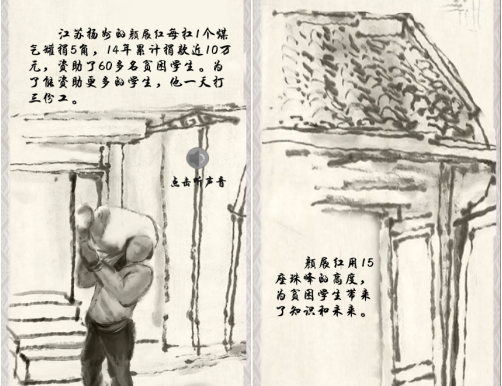 江苏扬州的颜展红每扛1个煤
气罐捐5角，14年累计捐款近10万
元，资助了60多名贫困学生。为
了能资助更多的学生，他一天打
三份工。
点击听声音
颜展红用15
座珠峰的高度，
为贫困学生带来
了知识和未来。